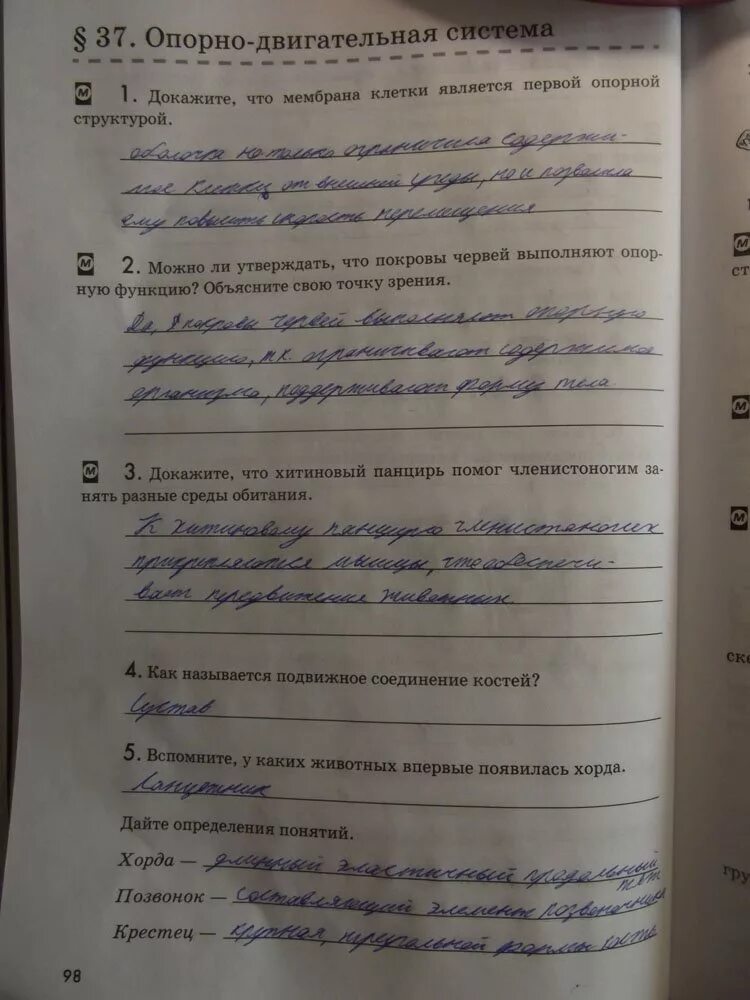 § 37. Опорно-двигательная система
М 1. Докажите, что мембрана клетки является первой опорной
структурой.
оболочка не только ограничила содержи-
мое клетки от внешней среды, но и позволила
ему повысить скорость перемещения
М 2. Можно ли утверждать, что покровы червей выполняют опор-
ную функцию? Объясните свою точку зрения.
Да, покровы червей выполняют опорную
функцию, т.к. ограничивают содержимое
организма, поддерживают форму тела
М 3. Докажите, что хитиновый панцирь помог членистоногим за-
нять разные среды обитания.
К хитиновому панцирю членистоногих
прикрепляются мышцы, что обеспечи-
вает передвижение животных.
4. Как называется подвижное соединение костей?
Сустав
5. Вспомните, у каких животных впервые появилась хорда.
Ланцетник
Дайте определения понятий.
Хорда — длинный эластичный продольный
тяж
Позвонок — составляющий элемент позвоночника
Крестец — крупная, треугольной формы кость
98
М
ст
М
М
ске
гру